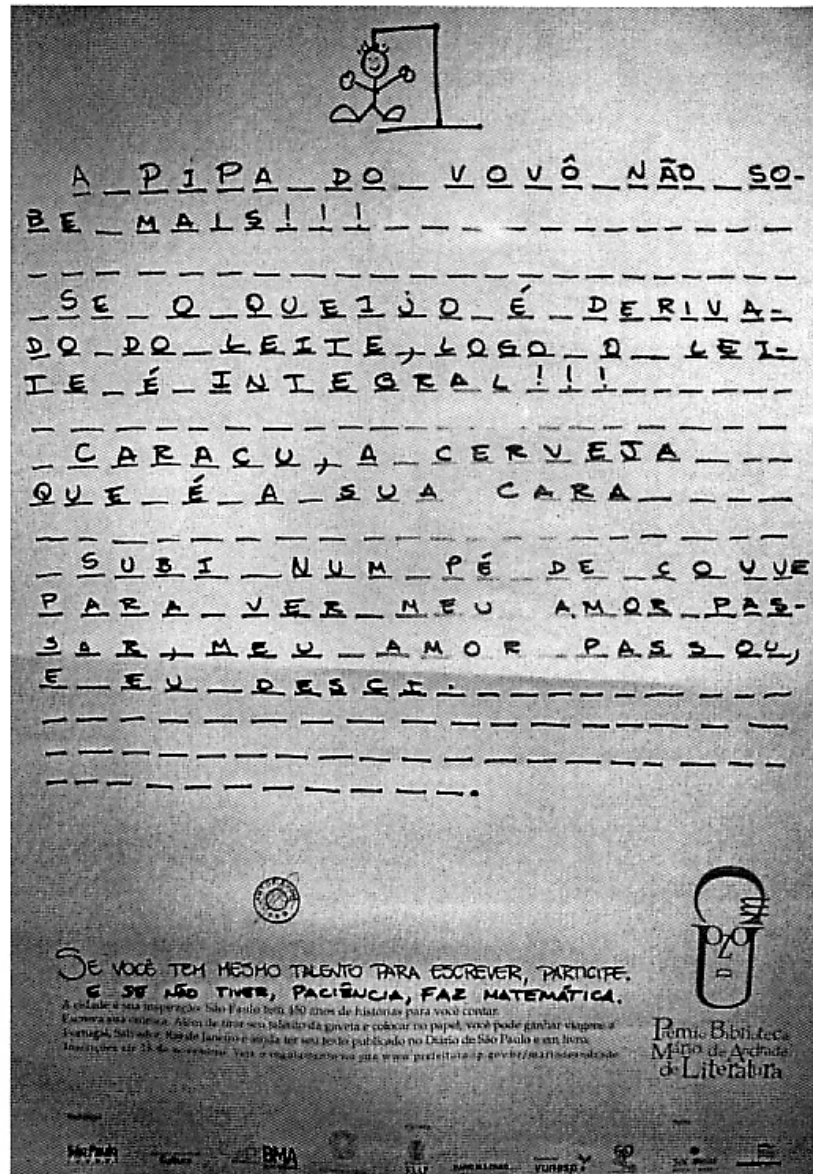 A PIPA DO VOVÔ NÃO SO-
BE MAIS!!!
SE O QUEIJO É DERIVA-
DO DO LEITE, LOGO O LEI-
TE É INTEGRAL!!!
CARACU, A CERVEJA
QUE É A SUA CARA
SUBI NUM PÉ DE COUVE
PARA VER MEU AMOR PAS-
SAR, MEU AMOR PASSOU,
E EU DESCI.
SE VOCÊ TEM MESMO TALENTO PARA ESCREVER, PARTICIPE.
E SE NÃO TIVER, PACIÊNCIA, FAZ MATEMÁTICA.
A cidade é sua inspiração. São Paulo tem 450 anos de histórias para você contar.
Escreva sua. Além de tirar seu talento da gaveta e colocar no papel, você pode ganhar viagens a
Portugal, Salvador, Rio de Janeiro e ainda ter seu texto publicado no Diário de São Paulo e em livro.
Inscrições até de novembro. Veja o regulamento no site www.prefeitura.sp.gov.br/mariodeandrade
Prêmio Biblioteca
Mário de Andrade
de Literatura
São Paulo
Cultura
BMA
VUNESP